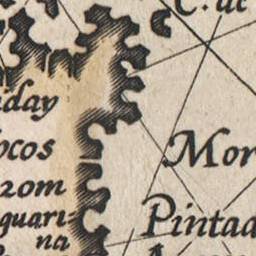 C. de
day
ocos
zom
quari=
na
Mor
Pintad